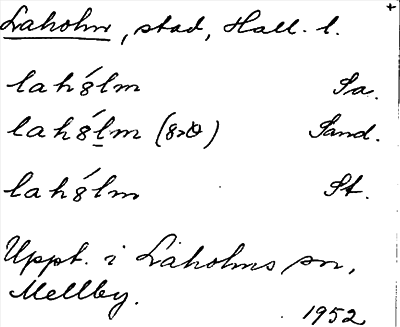 Laholm, stad, Hall. l.
lahó̀lm Sa.
lahó̀lm (8>ɵ) Sand.
lahó̀lm St.
Uppt. i Laholms sn,
Mellby.
1952